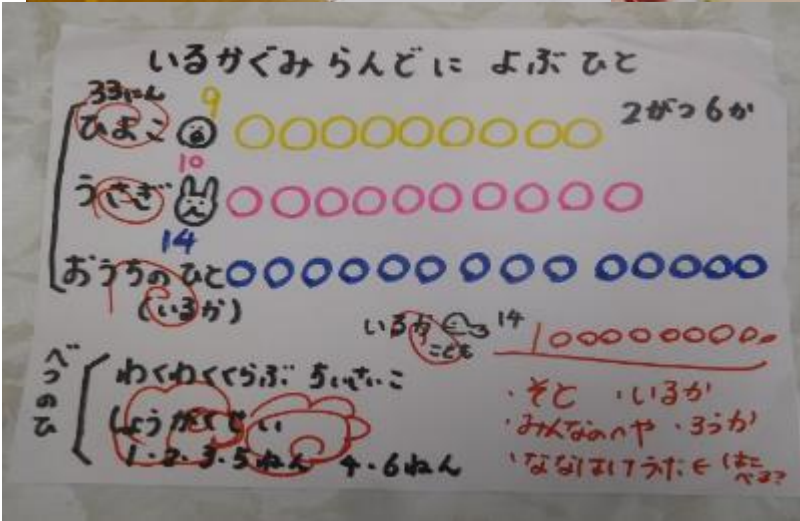 いるかぐみ らんどに よぶ ひと
2がつ6か
33にん
9
ひよこ
10
うさぎ
14
おうちの ひと
(いるか)
いるか 14
こども
べつのひ
わくわくくらぶ ちいさいこ
しょうがくせい
1・2・3・5ねん 4・6ねん
・そと ・いるか
・みんなのへや ・ろうか